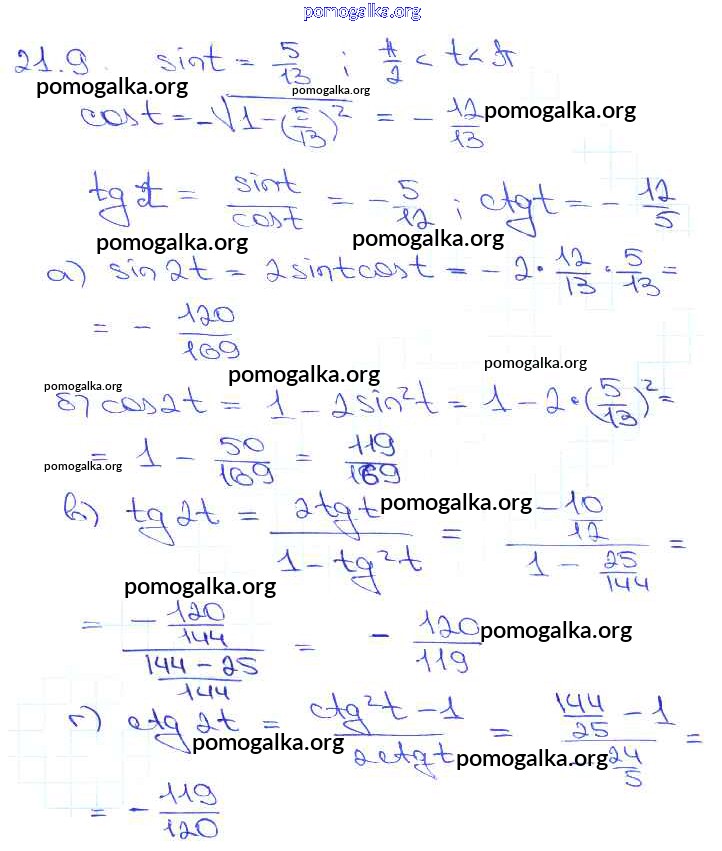 pomogalka.org
21.9. sin t = 5/13 ; π/2 < t < π
pomogalka.org pomogalka.org pomogalka.org
cos t = -√(1-(5/13)²) = - 12/13
tg t = sin t/cos t = - 5/12 ; ctg t = - 12/5
pomogalka.org pomogalka.org
а) sin 2t = 2 sin t cos t = - 2 · 12/13 · 5/13 =
= - 120/169
pomogalka.org pomogalka.org pomogalka.org
б) cos 2t = 1 - 2 sin² t = 1 - 2 · (5/13)² =
= 1 - 50/169 = 119/169
pomogalka.org
в) tg 2t = 2 tg t/(1 - tg² t) = (- 10/12)/(1 - 25/144) =
pomogalka.org
pomogalka.org
= (- 120/144)/((144 - 25)/144) = - 120/119
pomogalka.org
г) ctg 2t = (ctg² t - 1)/(2 ctg t) = (144/25 - 1)/(24/5) =
pomogalka.org pomogalka.org
= - 119/120